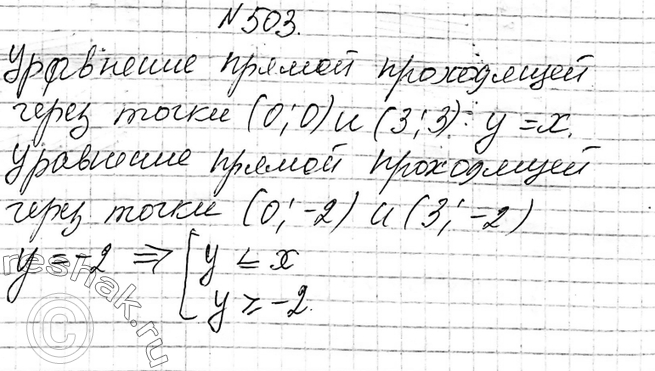 №503.
Уравнение прямой проходящей
через точки (0; 0) и (3; 3): y = x.
Уравнение прямой проходящей
через точки (0; -2) и (3; -2)
y = -2 ⇒ [ y ≤ x
y ≥ -2.
reshak.ru
©